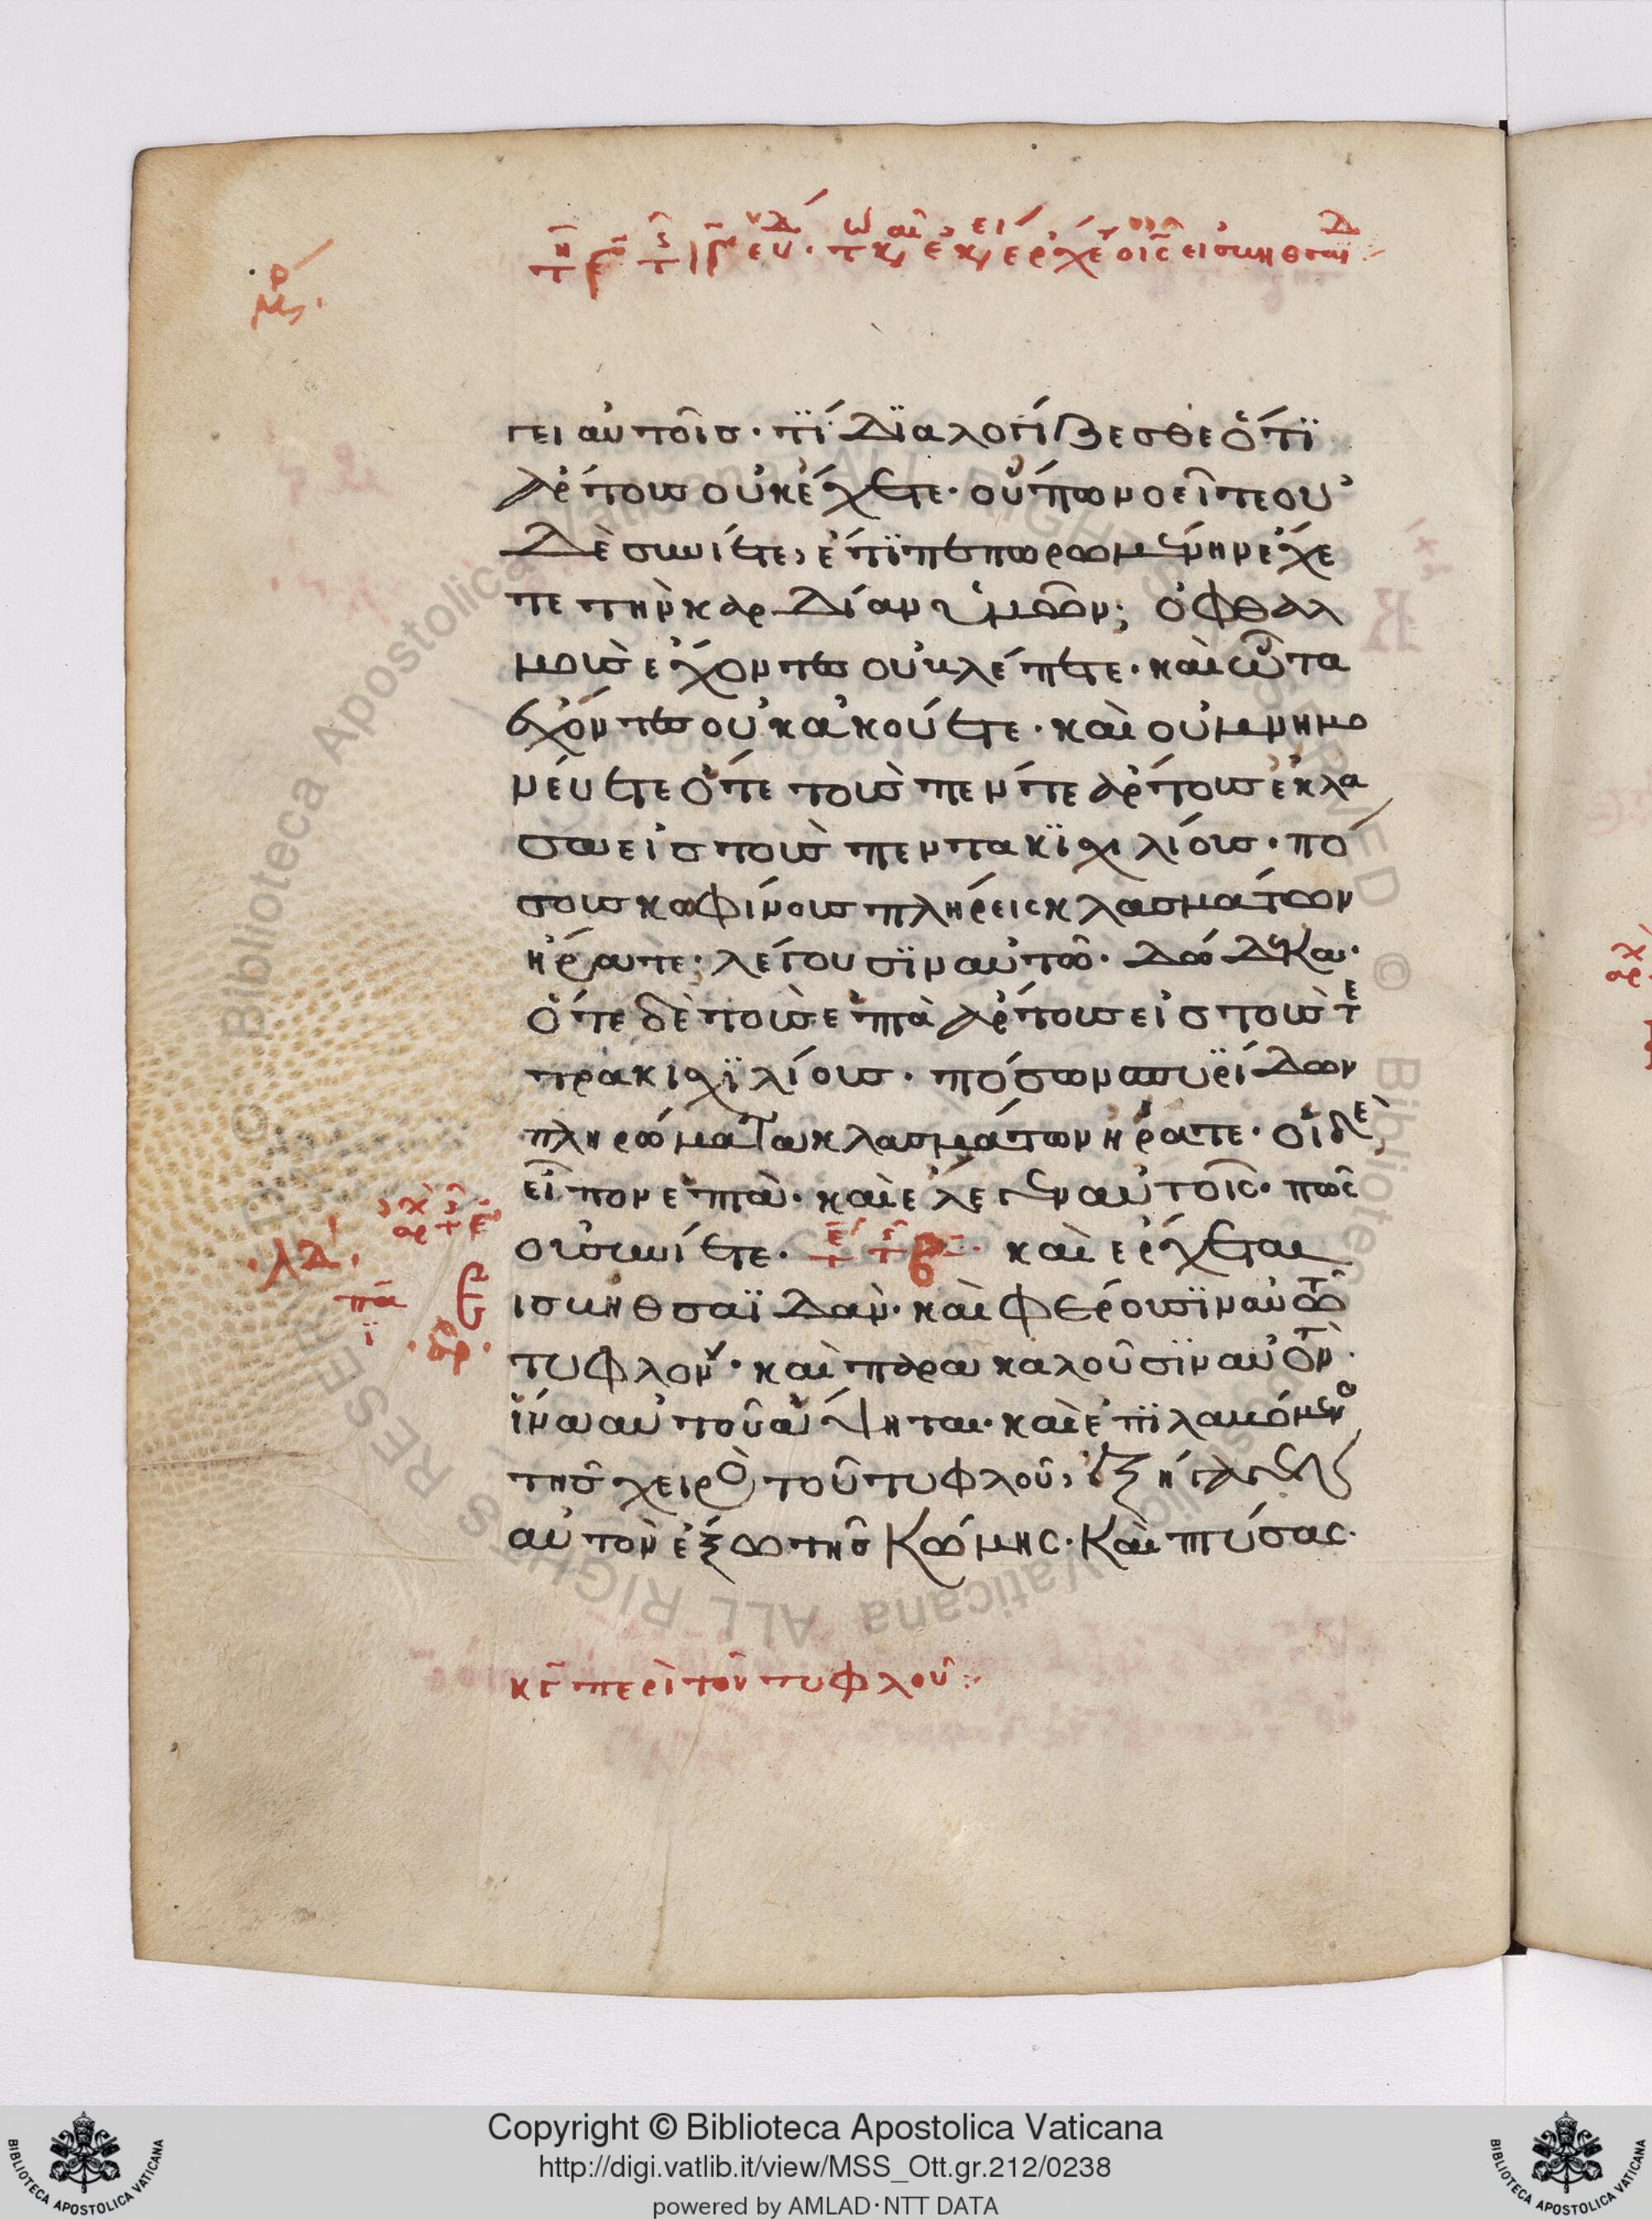 γει αὐτοῖσ· τί διαλογίζεσθε ὅτϊ
ἄρτουσ οὐκ ἔχετε· οὔπω νοεῖτε οὐ
δὲ συνίετε, ἔτϊ πεπωρωμένην ἔχε
τε τὴν καρδίαν ὑμῶν; ὀφθαλ
μοὺσ ἔχοντεσ οὐ βλέπετε· καὶ ὦτα
ἔχοντεσ οὐκ ἀκούετε· καὶ οὐ μνημο
νεύετε ὅτε τοὺσ πέντε ἄρτουσ ἔκλα
σα εἰσ τοὺσ πεντακϊχιλίουσ· πό
σουσ κωφίνουσ πλήρεις κλασμάτων
ἤρατε· λέγουσϊν αὐτῶ· δώδεκα·
ὅτε δὲ τοὺσ ἑπτὰ ἄρτουσ εἰσ τοὺσ τε
τρακιχϊλίουσ· πόσων σπυρίδων
πληρώματα κλασμάτων ἤρατε· οἱ δὲ
εἶπον ἑπτὰ· καὶ ἔλεγεν αὐτοῖς· πῶς
οὐ συνίετε· καὶ ἔρχεται
εἰσ κηθσαϊδὰν· καὶ φέρουσϊν αὐτῶ
τυφλον· καὶ παρακαλοῦσϊν αὐτὸν·
ἵνα αὐτοῦ ἅψηται· καὶ ἐπϊλαβόμενο
τῆσ χειρὸς τοῦ τυφλοῦ, ἐξήγαγεν
αὐτὸν ἔξω τῆσ κώμης· καὶ πτύσας·
κγ περὶ τοῦ τυφλοῦ:
Copyright © Biblioteca Apostolica Vaticana
http://digi.vatlib.it/view/MSS_Ott.gr.212/0238
powered by AMLAD·NTT DATA
BIBLIOTECA APOSTOLICA VATICANA
BIBLIOTECA APOSTOLICA VATICANA